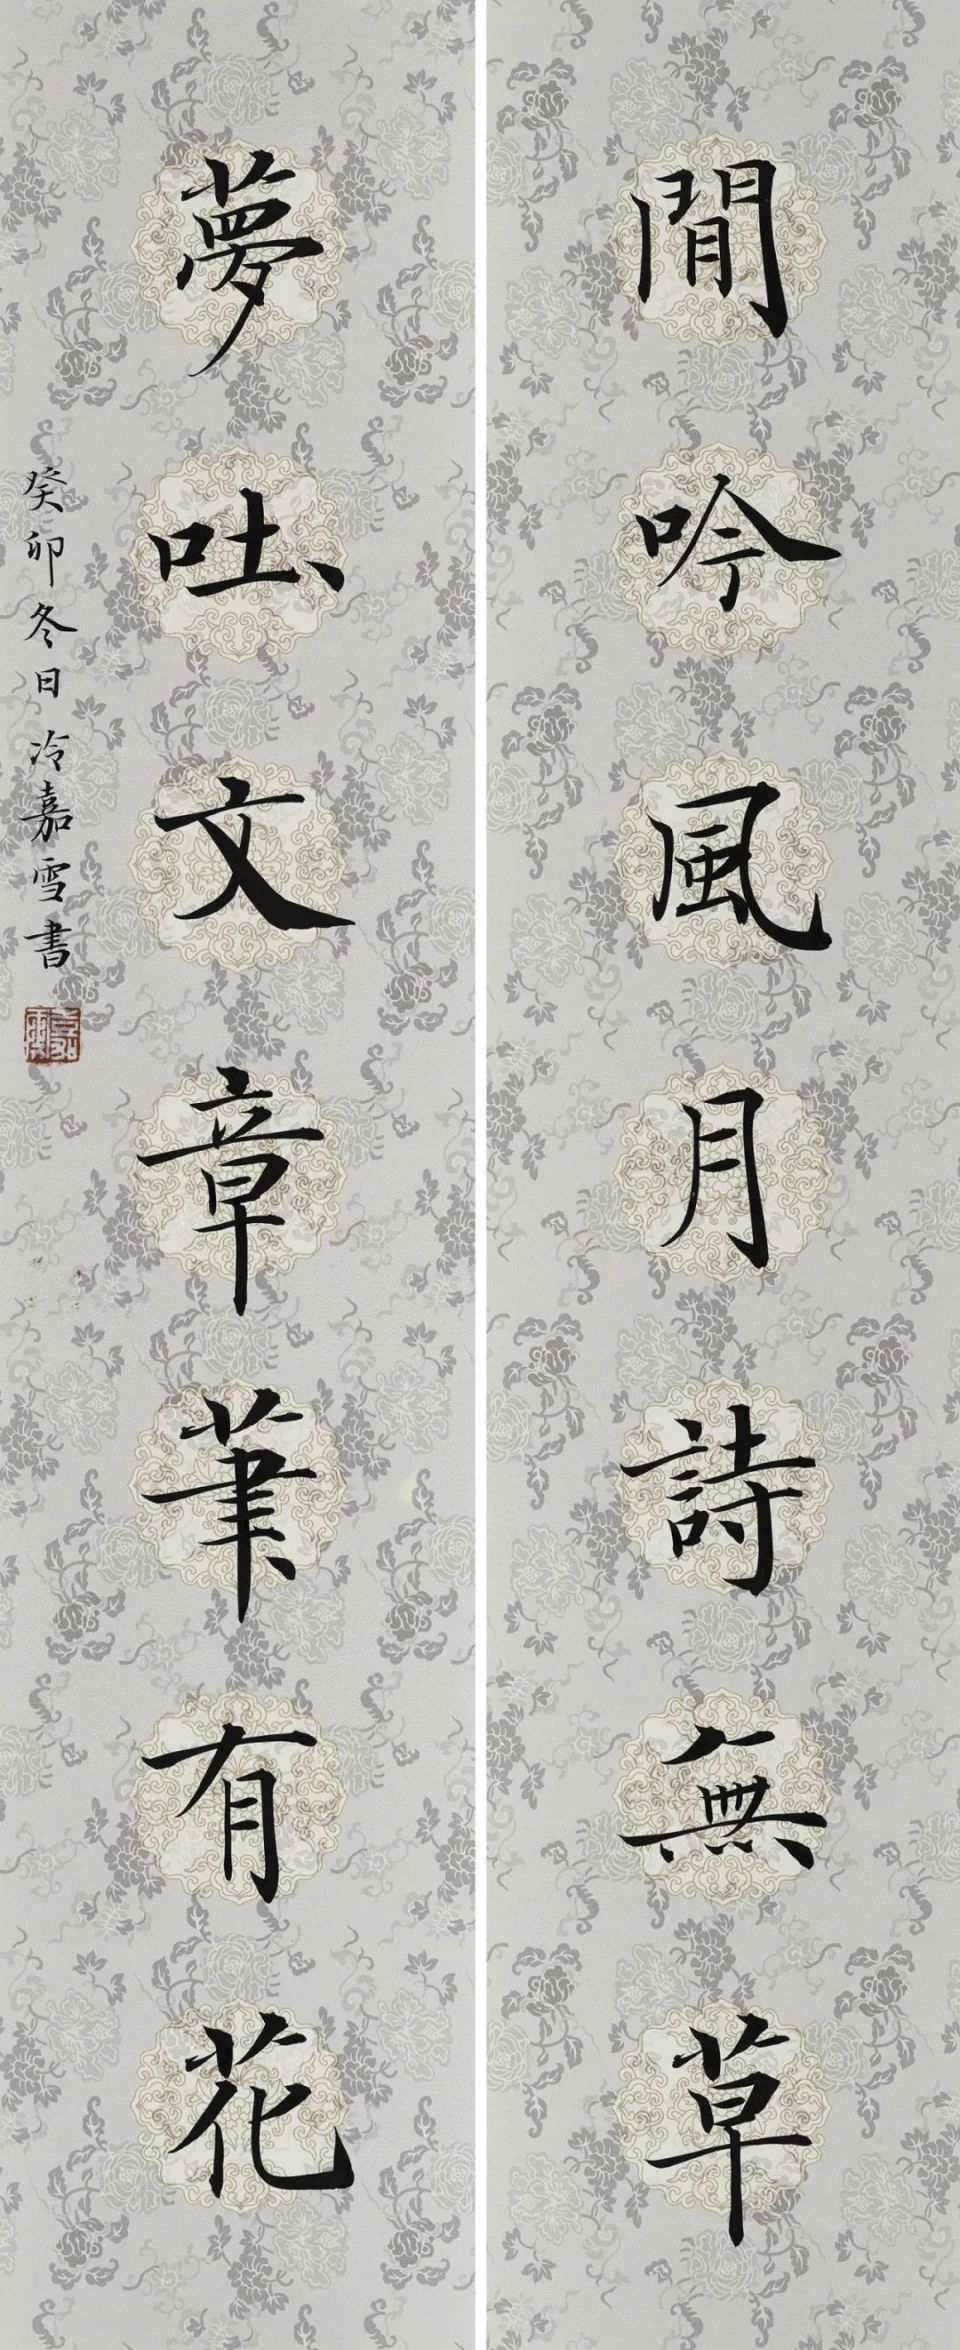 閒吟風月詩無草
夢吐文章筆有花
癸卯冬日冷嘉雪書
嘉雪